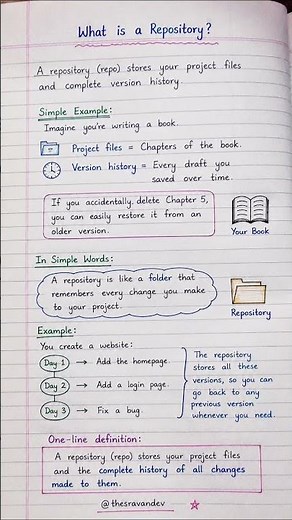 What is a Repository?
A repository (repo) stores your project files
and complete version history.
Simple Example:
Imagine you're writing a book.
Project files = Chapters of the book.
Version history = Every draft you
saved over time.
If you accidentally delete Chapter 5,
you can easily restore it from an
older version.
Your Book
In Simple Words:
A repository is like a folder that
remembers every change you make
to your project.
Repository
Example:
You create a website:
Day 1 → Add the homepage.
Day 2 → Add a login page.
Day 3 → Fix a bug.
The repository
stores all these
versions, so you can
go back to any
previous version
whenever you need.
One-line definition:
A repository (repo) stores your project files
and the complete history of all changes
made to them.
@thesravandev